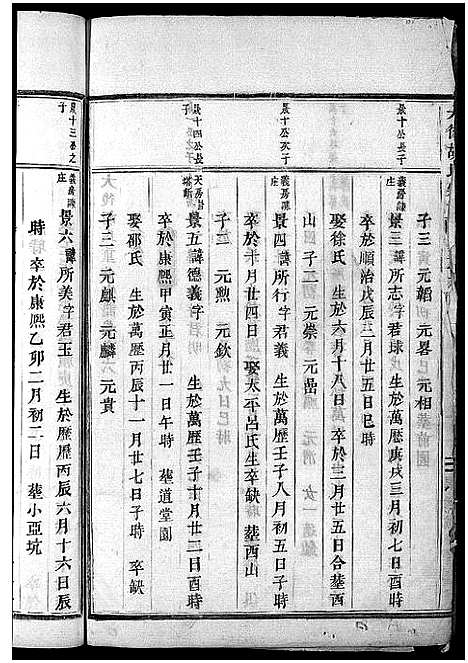 子三 元韜 元畧 元相
景十公長子
義房陳庄
景三諱所志字君球 生於萬歷庚戌三月初七日酉時
卒於順治戊辰三月廿五日巳時
娶徐氏 生於六月十八日 卒於三月廿五日合塟西
山 子二 元崇 元嵒
景十公次子
義房陳庄
景四諱所行字君義 生於萬歷壬子八月初五日子時
卒於十月廿四日 娶太平呂氏生卒缺 塟西山
子二 元勲 元欽
景十四公長子
天房
景五諱德義字君明 生於萬歷壬子十月廿三日酉時
卒於康熙甲寅正月廿一日午時 塟道堂園
娶邵氏 生於萬歷丙辰十一月廿七日子時 卒缺
子三 元麒 元麟 元貴
景十三公之子
義房陳庄
景六諱所美字君玉 生於歷丙辰六月十六日辰
時 卒於康熙乙卯二月初二日 塟小亞坑